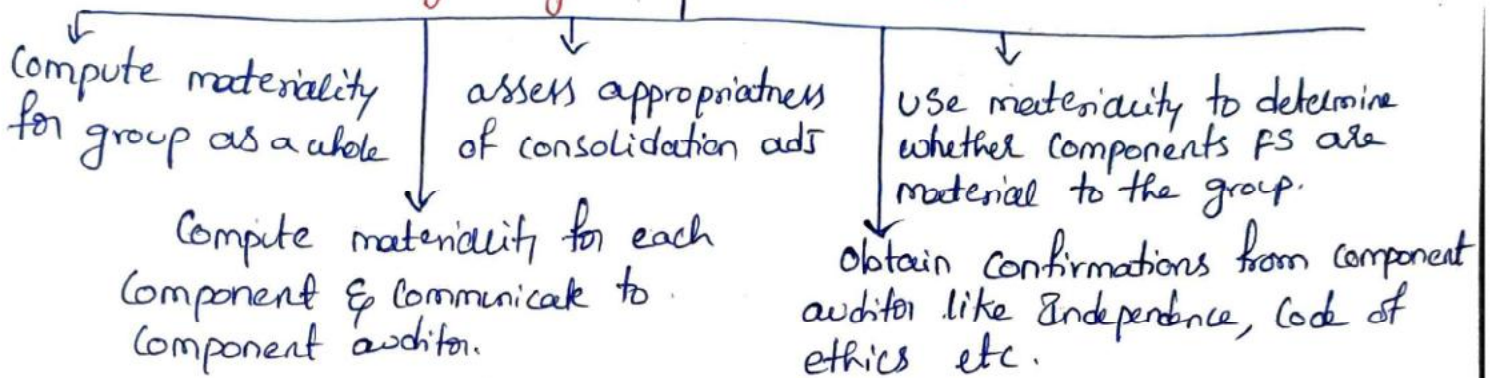 Compute materiality
for group as a whole
assess appropriatness
of consolidation adj
use materiality to determine
whether components FS are
material to the group.
Compute materiality for each
Component & Communicate to
Component auditor.
Obtain Confirmations from component
auditor like Independence, Code of
ethics etc.